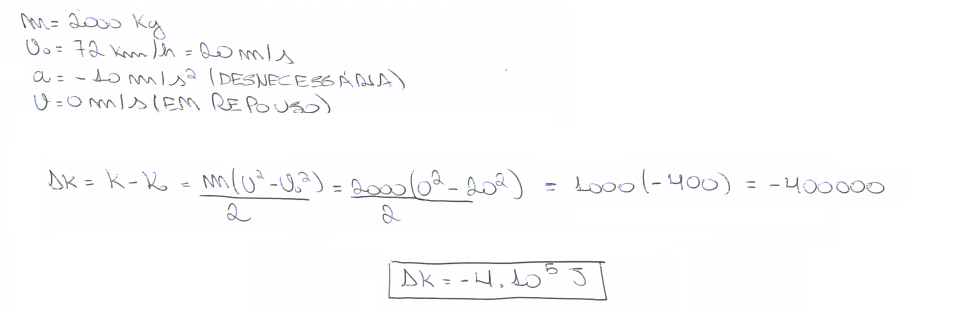 m = 2000 Kg
v₀ = 72 km/h = 20 m/s
a = -10 m/s² (DESNECESSÁRIA)
v = 0 m/s (EM REPOUSO)
ΔK = K - K₀ = m(v² - v₀²)/2 = 2000(0² - 20²)/2 = 1000(-400) = -400000
ΔK = -4.10⁵ J